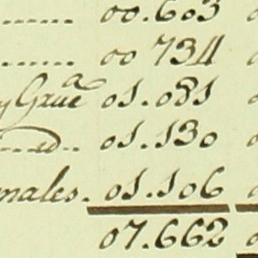 ........ 00.603
........ 00 734
y Grueª 01.081
01.130
males. 01.106
07.662